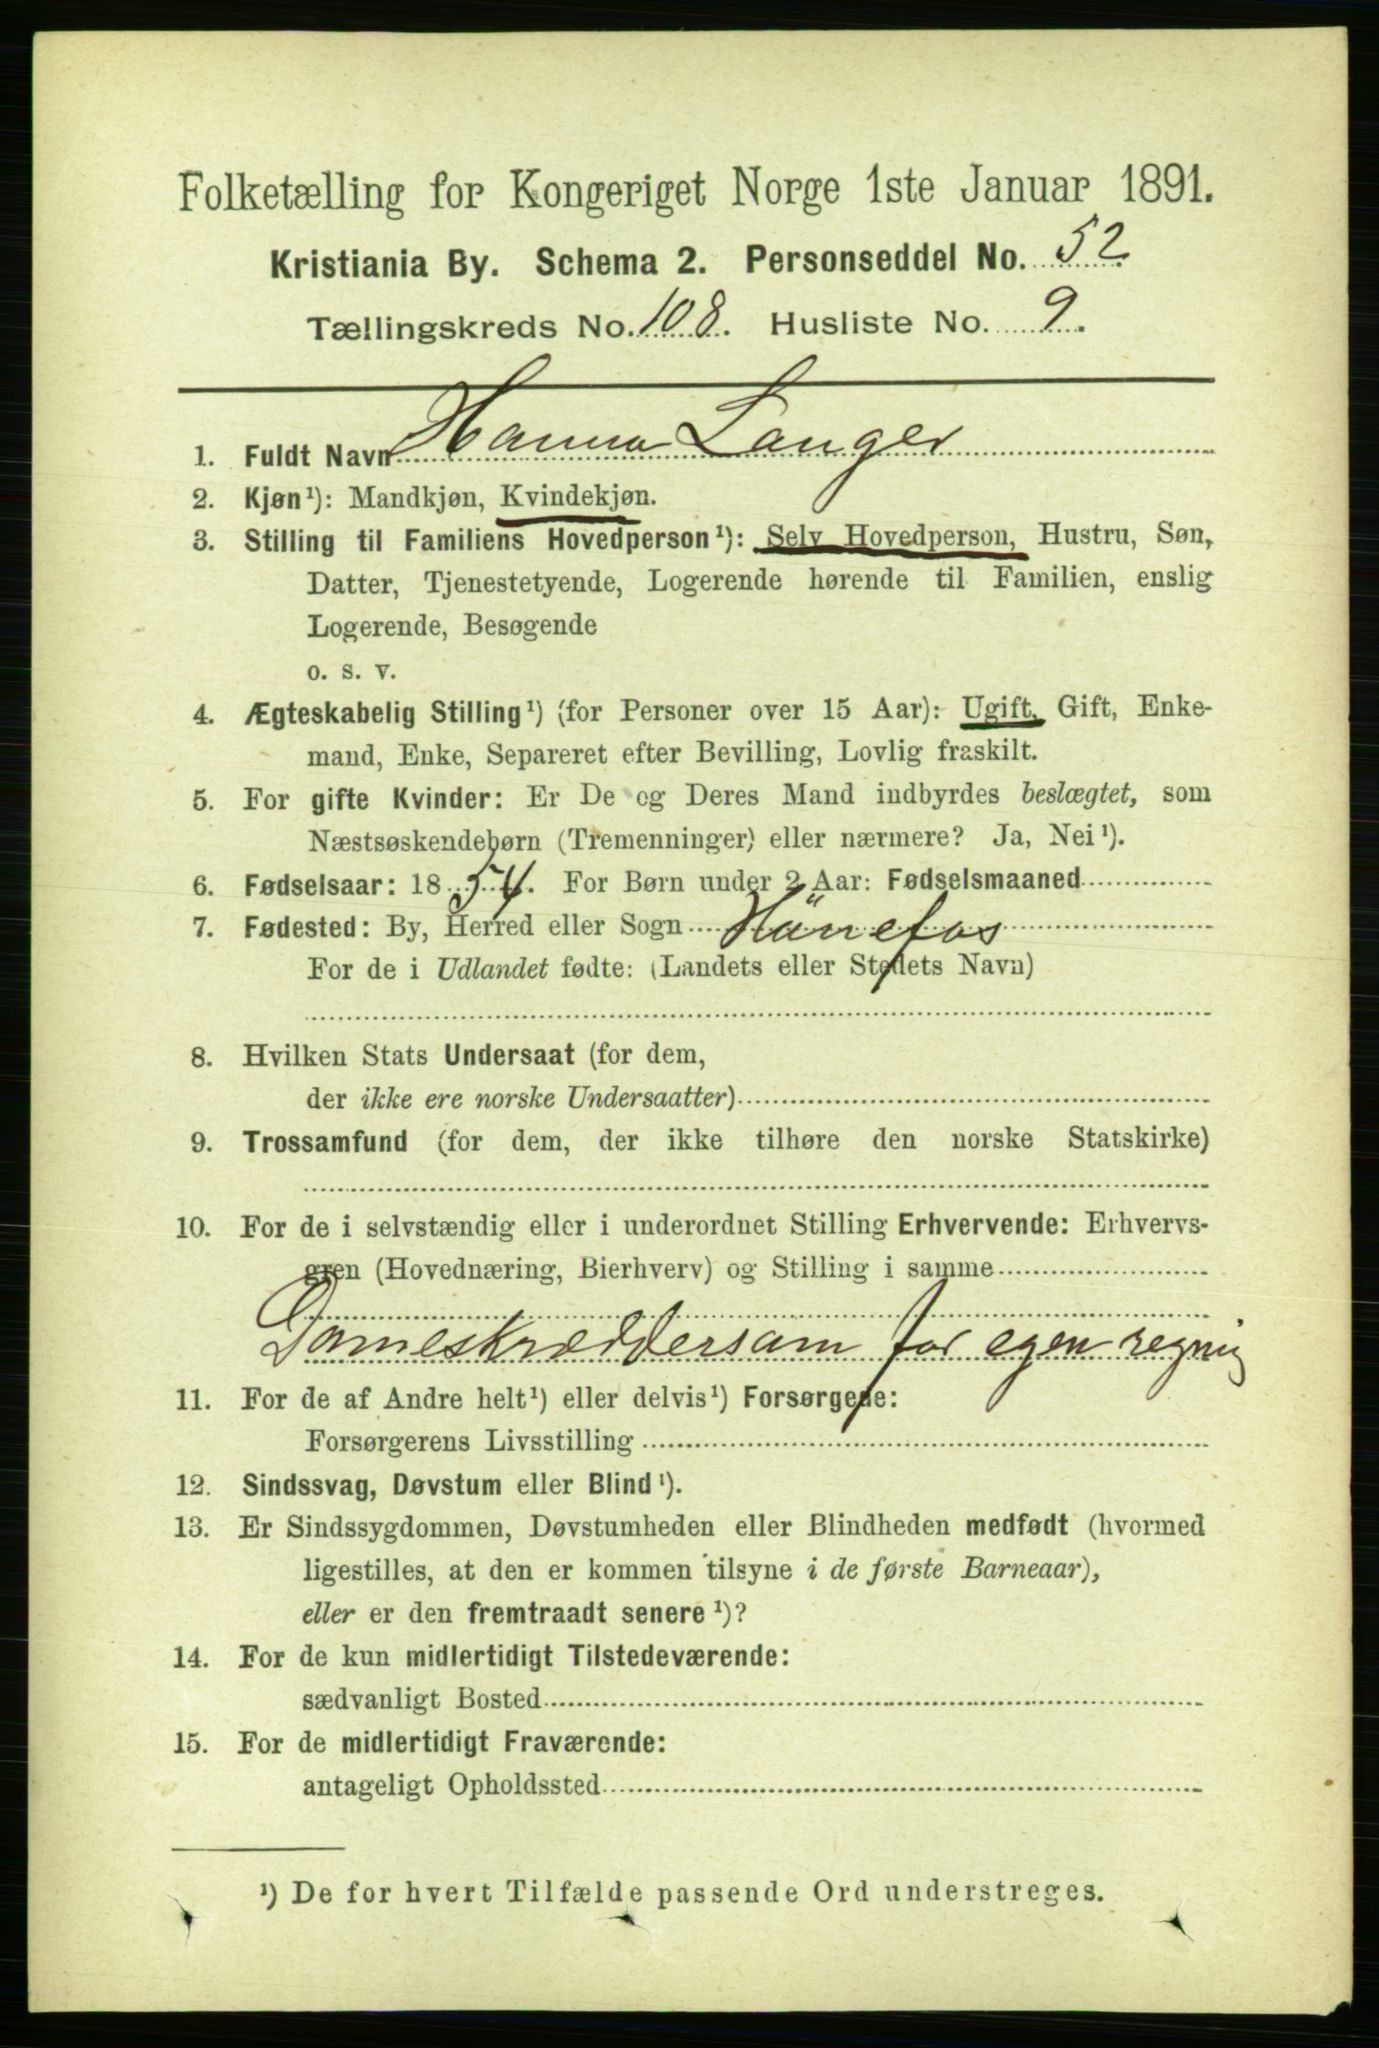 Folketælling for Kongeriget Norge 1ste Januar 1891.
Kristiania By. Schema 2. Personseddel No. 52
Tællingskreds No. 108. Husliste No. 9.
1. Fuldt Navn Hanna Langer
2. Kjøn¹): Mandkjøn, Kvindekjøn.
3. Stilling til Familiens Hovedperson¹): Selv Hovedperson, Hustru, Søn,
Datter, Tjenestetyende, Logerende hørende til Familien, enslig
Logerende, Besøgende
o. s. v.
4. Ægteskabelig Stilling¹) (for Personer over 15 Aar): Ugift, Gift, Enke-
mand, Enke, Separeret efter Bevilling, Lovlig fraskilt.
5. For gifte Kvinder: Er De og Deres Mand indbyrdes beslægtet, som
Næstsøskendebørn (Tremenninger) eller nærmere? Ja, Nei¹).
6. Fødselsaar: 1854. For Børn under 2 Aar: Fødselsmaaned
7. Fødested: By, Herred eller Sogn Hönefos
For de i Udlandet fødte: (Landets eller Stedets Navn)
8. Hvilken Stats Undersaat (for dem,
der ikke ere norske Undersaatter)
9. Trossamfund (for dem, der ikke tilhøre den norske Statskirke)
10. For de i selvstændig eller i underordnet Stilling Erhvervende: Erhvervs-
gren (Hovednæring, Bierhverv) og Stilling i samme
Dameskræddersam for egen regning
11. For de af Andre helt¹) eller delvis¹) Forsørgede:
Forsørgerens Livsstilling
12. Sindssvag, Døvstum eller Blind¹).
13. Er Sindssygdommen, Døvstumheden eller Blindheden medfødt (hvormed
ligestilles, at den er kommen tilsyne i de første Barneaar),
eller er den fremtraadt senere¹)?
14. For de kun midlertidigt Tilstedeværende:
sædvanligt Bosted
15. For de midlertidigt Fraværende:
antageligt Opholdssted
¹) De for hvert Tilfælde passende Ord understreges.